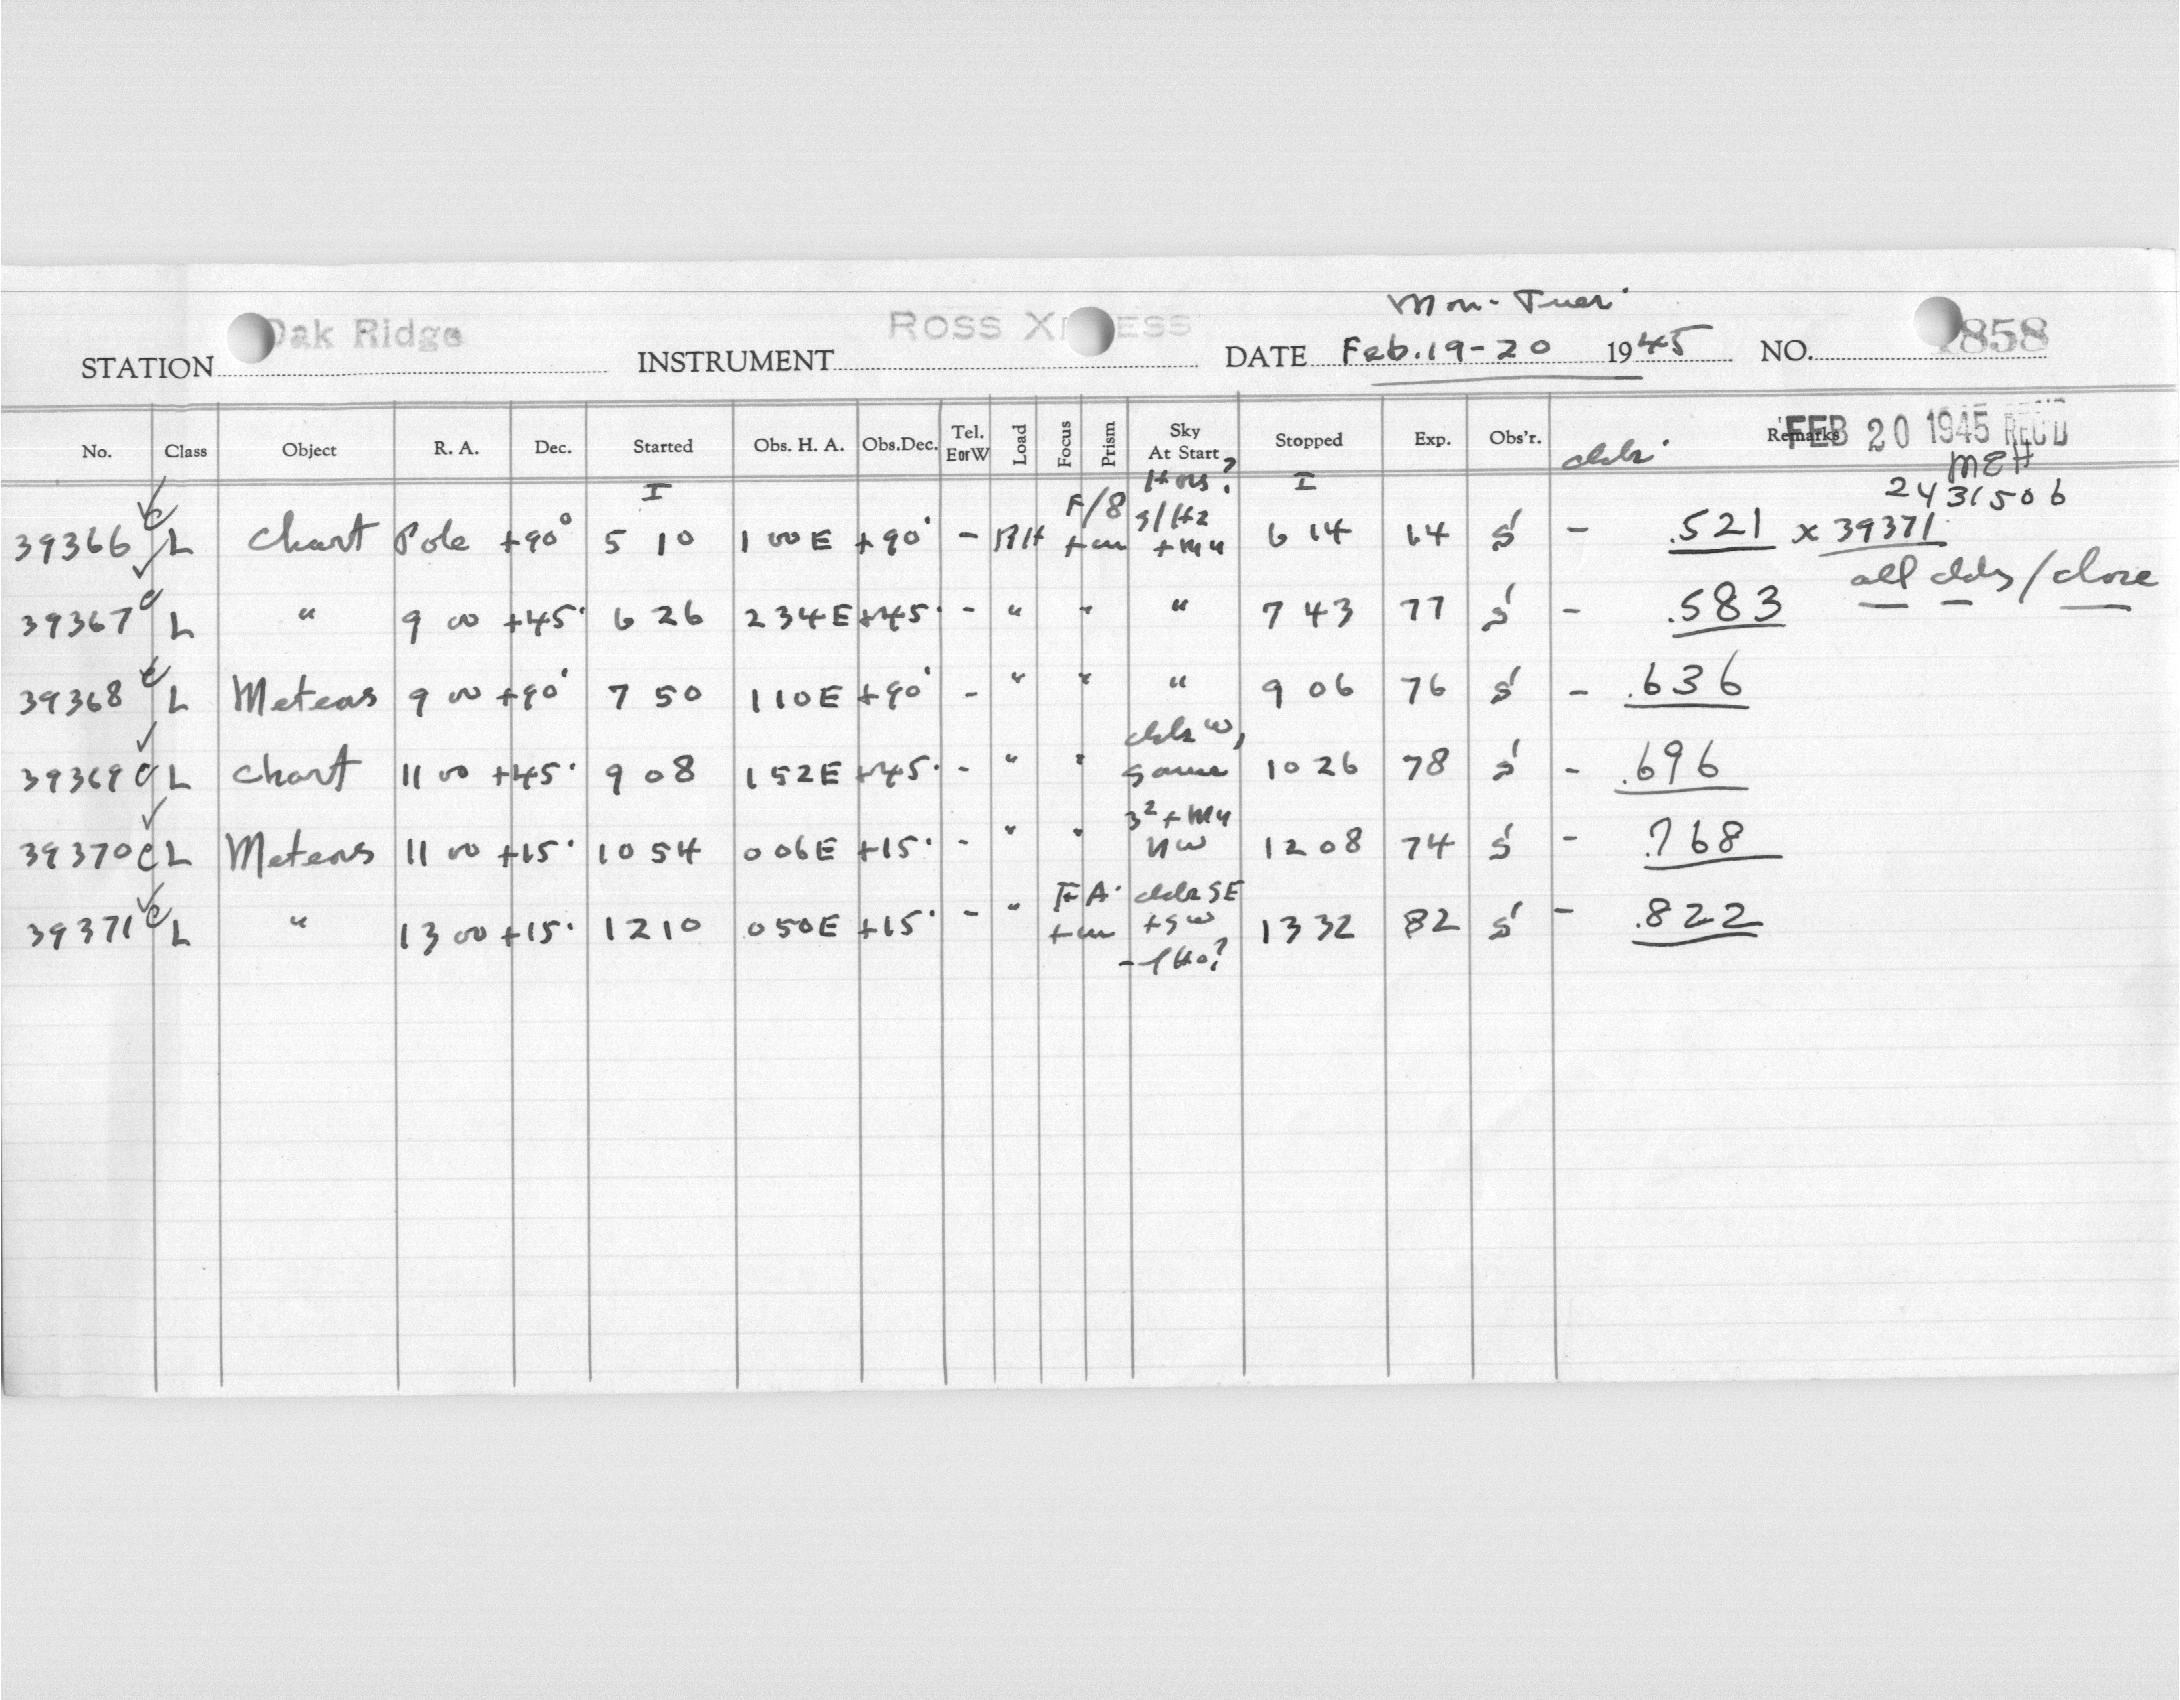 Mon-Tues.
STATION Oak Ridge INSTRUMENT ROSS DATE Feb. 19-20 1945 NO. 858
No. Class Object R. A. Dec. Started Obs. H. A. Obs.Dec. Tel. E or W Load Focus Prism Sky At Start Stopped Exp. Obs'r. Remarks
FEB 20 1945 REC'D
MEH
I I 2431506
39366 c L Chart Pole +90° 5 10 1 00 E +90° - RH F/8 6 14 64 S - .521 x 39371
all clds / close
39367 c L " 9 00 +45° 6 26 2 34 E +45° - " " " 7 43 77 S - .583
39368 c L Meteors 9 00 +90° 7 50 1 10 E +90° - " " " 9 06 76 S - .636
39369 c L Chart 11 00 +45° 9 08 1 52 E +45° - " " clds W, same 10 26 78 S - .696
39370 c L Meteors 11 00 +15° 10 54 0 06 E +15° - " " NW 12 08 74 S - .768
39371 c L " 13 00 +15° 12 10 0 50 E +15° - " clds SE +SW 13 32 82 S - .822